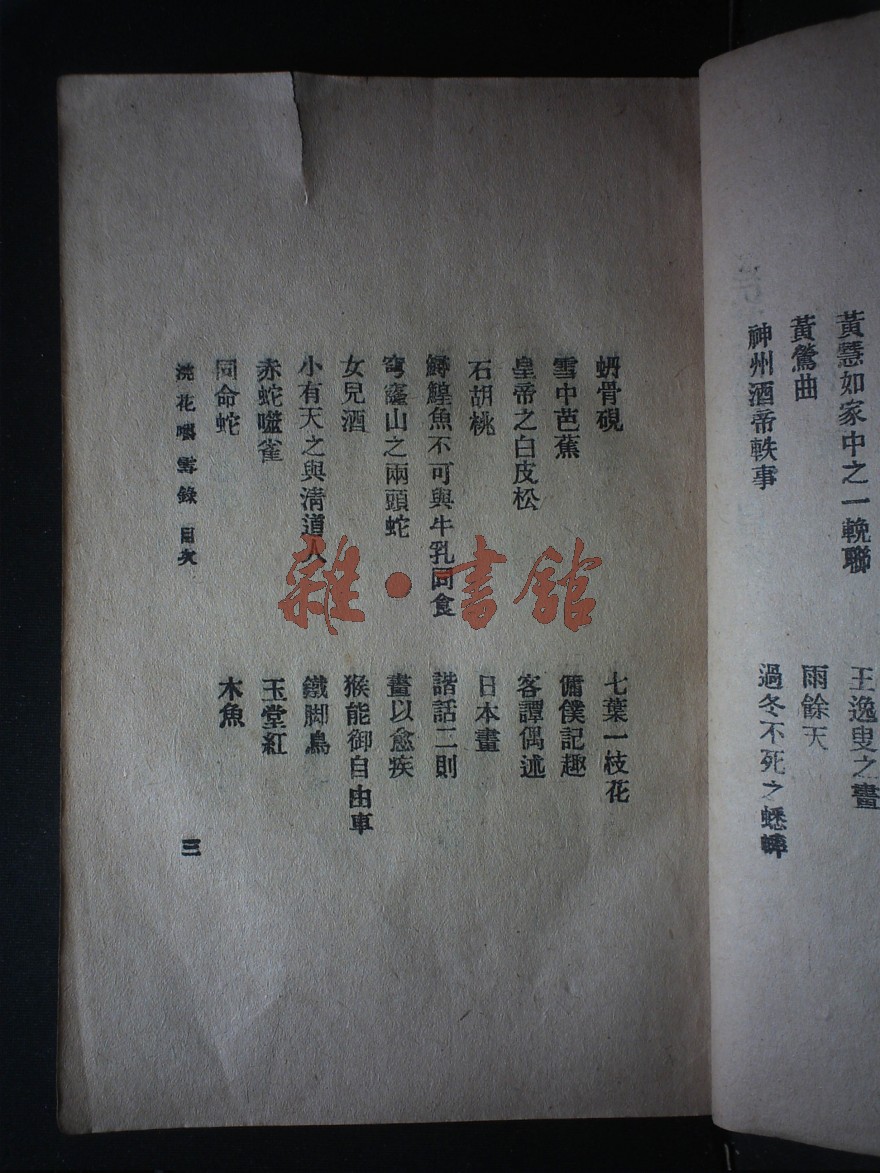 黃慧如家中之一輓聯
王逸叟之畫
黃鶯曲
雨餘天
神州酒帝軼事
過冬不死之蟋蟀
蚒骨硯
七葉一枝花
雪中芭蕉
傭僕記趣
皇帝之白皮松
客譚偶述
石胡桃
日本畫
鱘鰉魚不可與牛乳同食
諧話二則
穹窿山之兩頭蛇
畫以愈疾
女兒酒
猴能御自由車
小有天之與清道人
鐵脚鳥
赤蛇噬雀
玉堂紅
同命蛇
木魚
浣花嚼雪錄 目次
三
雜·書館